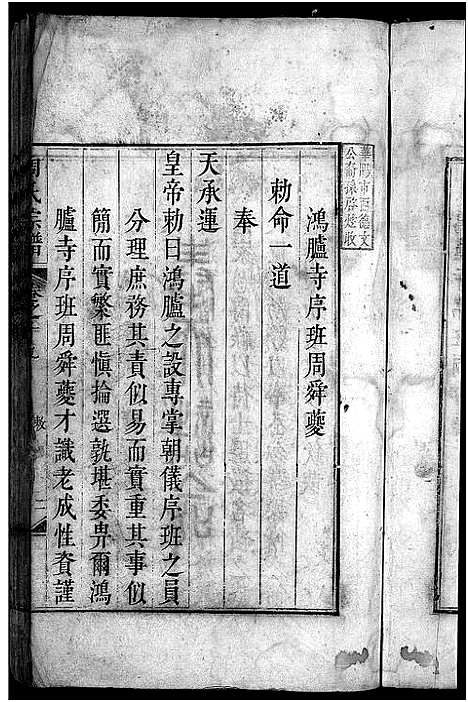 鴻臚寺序班周舜夔
勅命一道
奉
天承運
皇帝勅曰鴻臚之設專掌朝儀序班之員
分理庶務其責似易而實重其事似
簡而實繁匪慎掄選孰堪委畀爾鴻
臚寺序班周舜夔才識老成性資謹
周氏宗譜